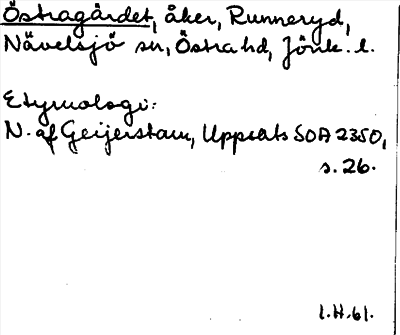 Östragärdet, åker, Runneryd,
Nävelsjö sn, Östra hd, Jönk. l.
Etymologi:
N. af Geijerstam, Uppsats SOA 2350,
s. 26.
l.H.61.